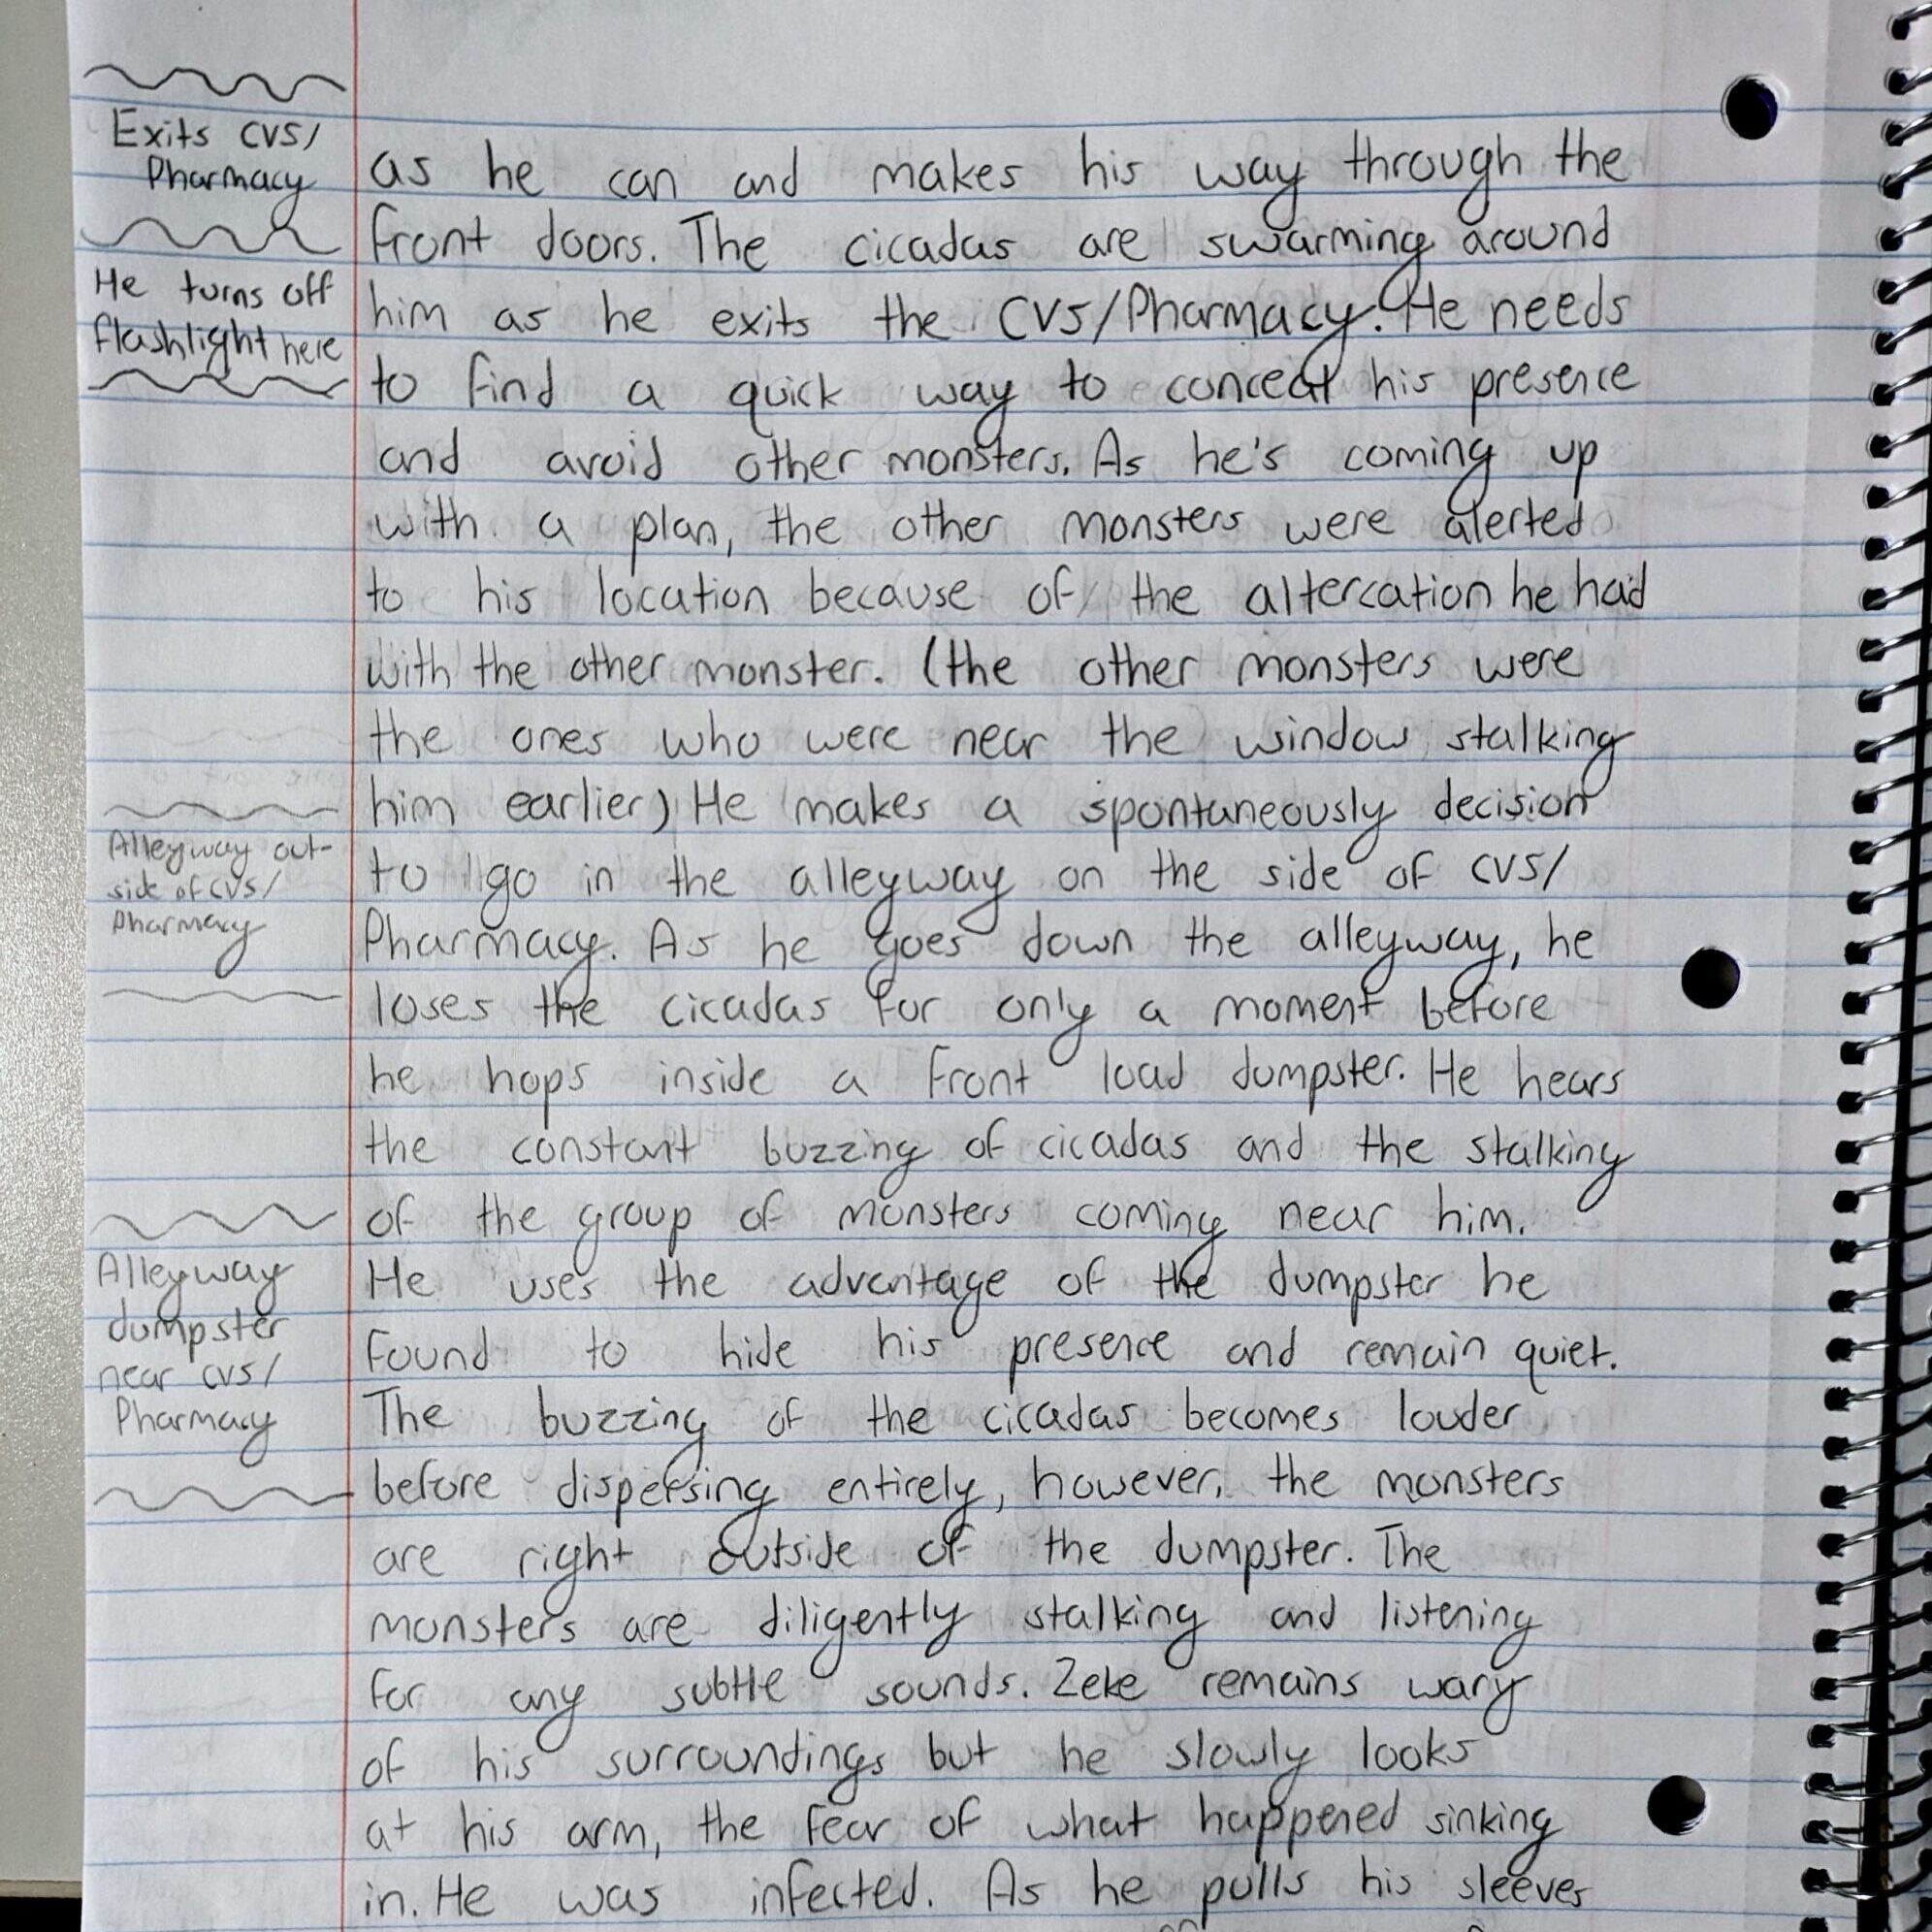 Exits CVS/
Pharmacy
He turns off
flashlight here
Alleyway out-
side of CVS/
Pharmacy
Alleyway
dumpster
near CVS/
Pharmacy
as he can and makes his way through the
front doors. The cicadas are swarming around
him as he exits the CVS/Pharmacy. He needs
to find a quick way to conceal his presence
and avoid other monsters. As he's coming up
with a plan, the other monsters were alerted
to his location because of the altercation he had
with the other monster. (the other monsters were
the ones who were near the window stalking
him earlier) He makes a spontaneously decision
to go in the alleyway on the side of CVS/
Pharmacy. As he goes down the alleyway, he
loses the cicadas for only a moment before
he hops inside a front load dumpster. He hears
the constant buzzing of cicadas and the stalking
of the group of monsters coming near him.
He uses the advantage of the dumpster he
found to hide his presence and remain quiet.
The buzzing of the cicadas becomes louder
before dispersing entirely, however, the monsters
are right outside of the dumpster. The
monsters are diligently stalking and listening
for any subtle sounds. Zeke remains wary
of his surroundings but he slowly looks
at his arm, the fear of what happened sinking
in. He was infected. As he pulls his sleeves